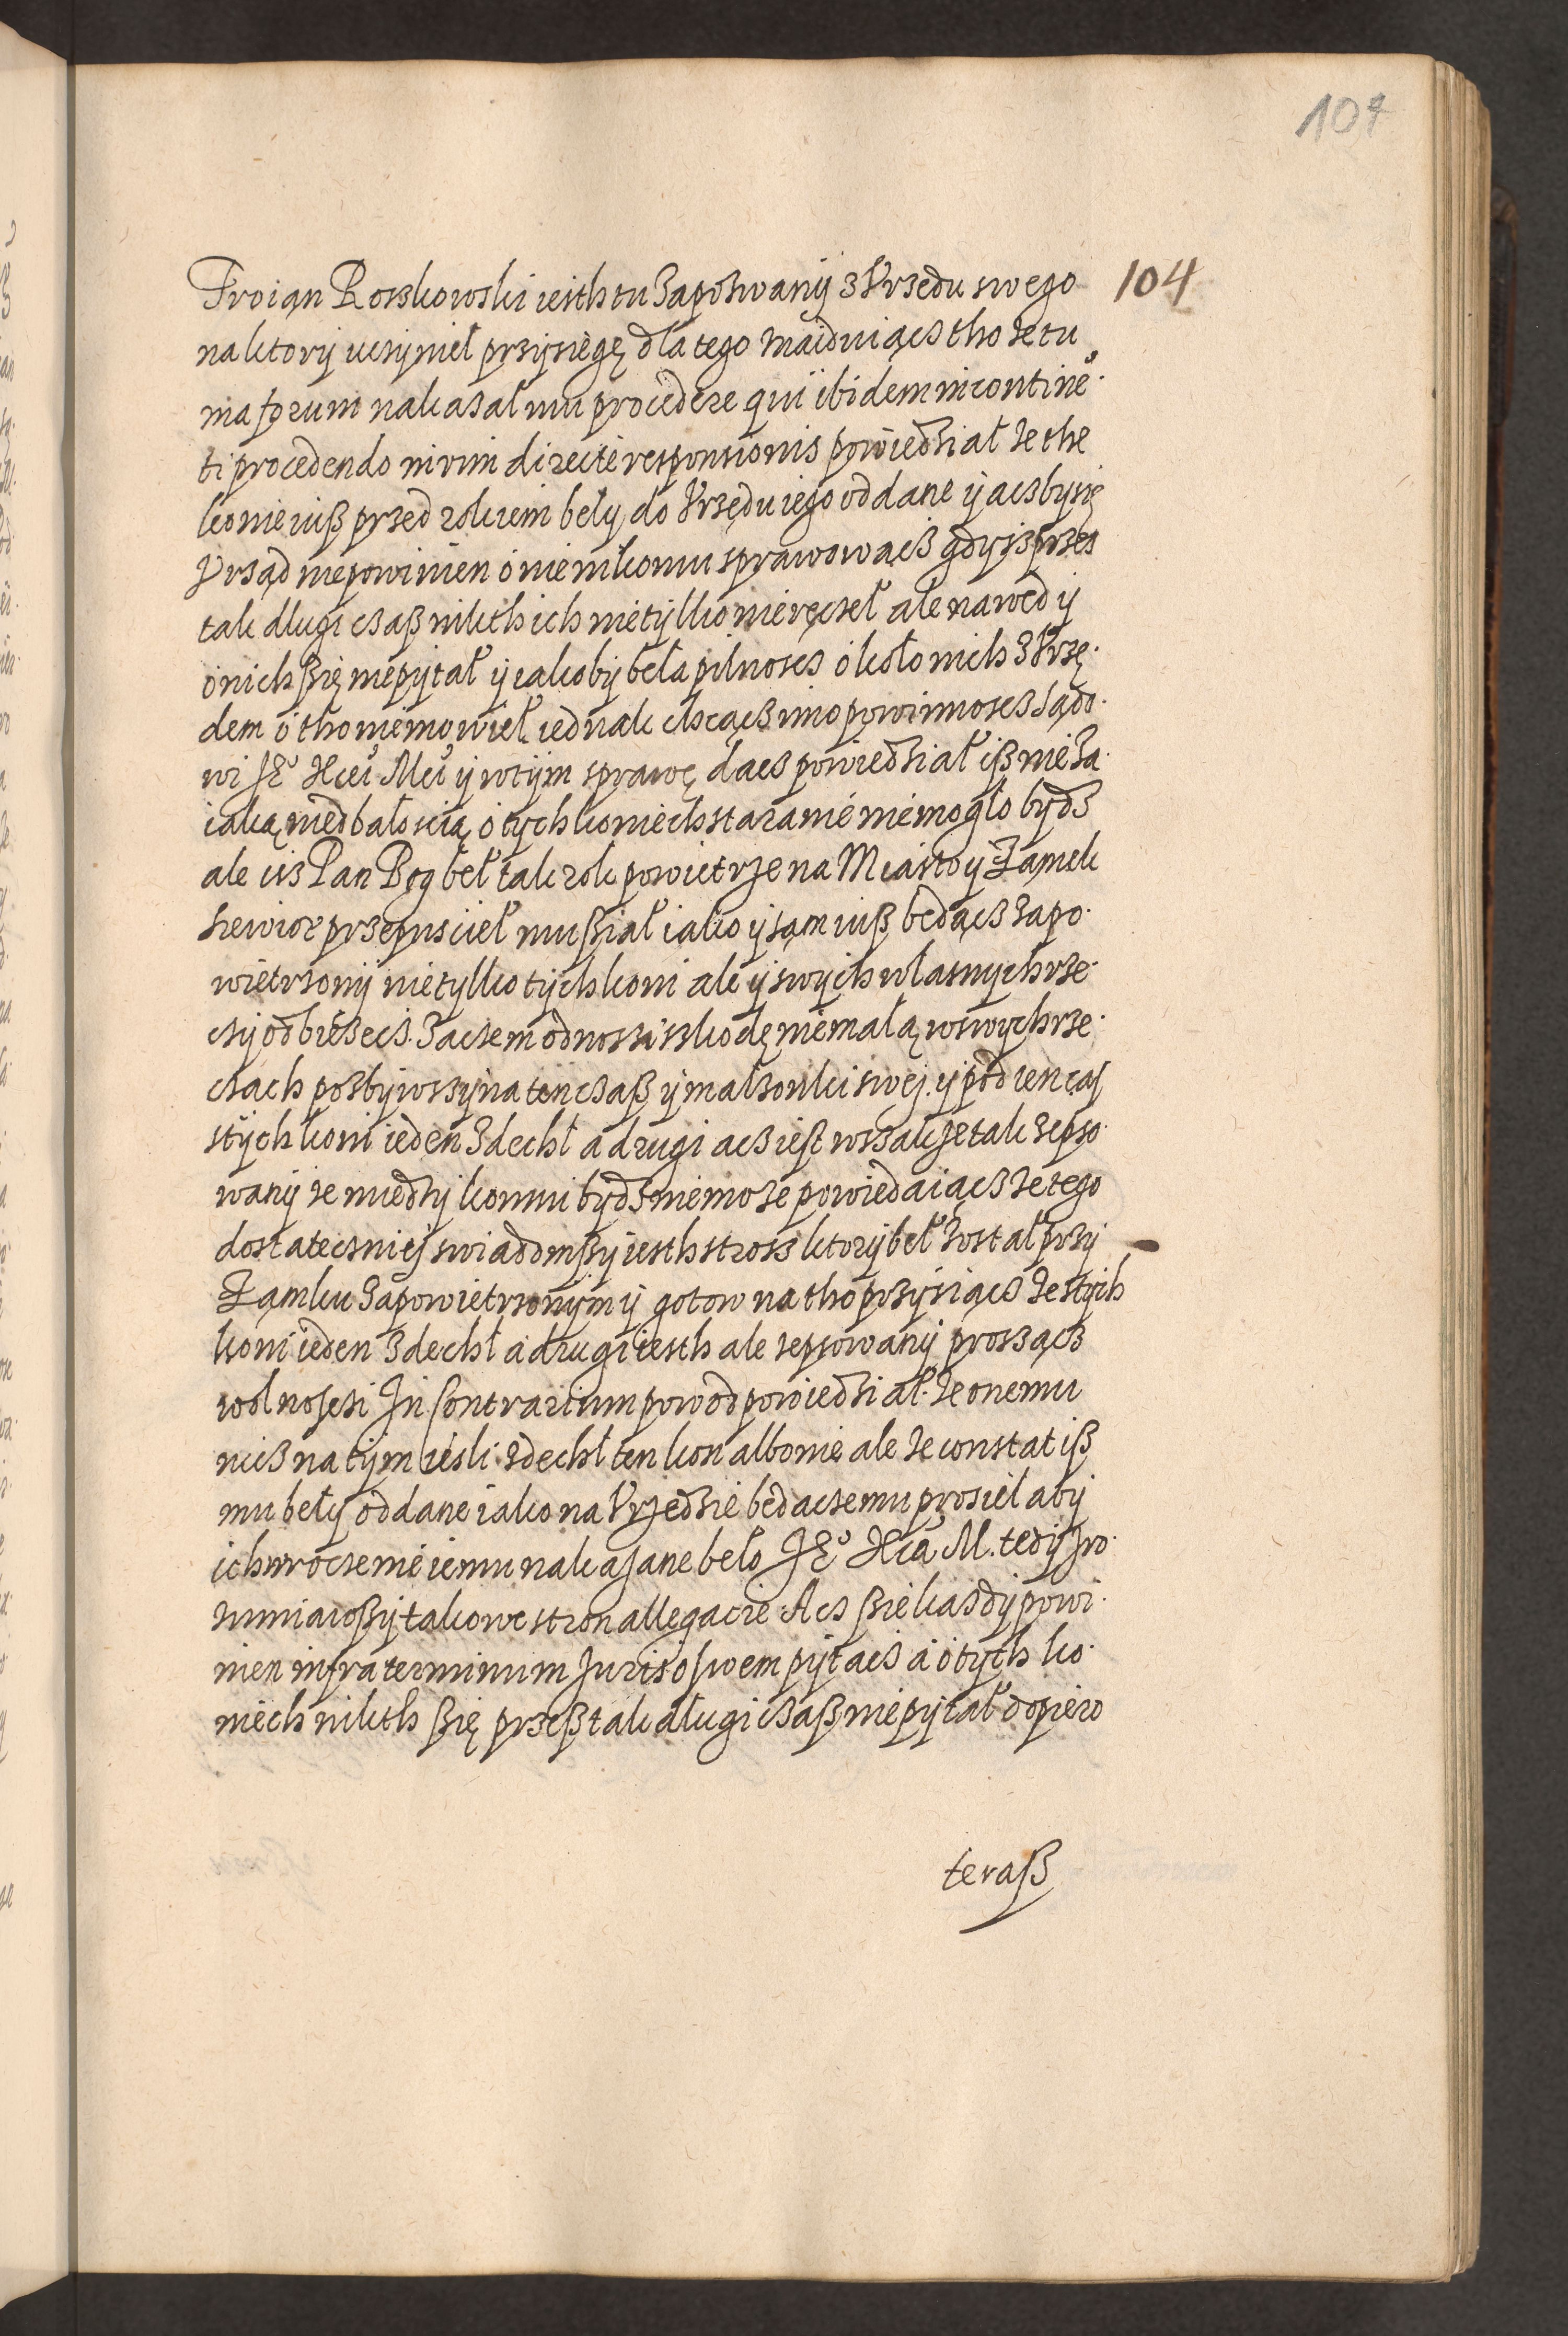 107
104
Troian Roszkowski iesth tu zapozwany z Vrzędu swego
na ktory vczynieł przysięgę dla tego znaiduiącz tho że tu
ma forum nakazał mu procedere qui ibidem in contine-
ti procedendo in vim directe responsionis powiedział że the
konie iusz przed rokiem beły do Vrzędu iego oddane y aczby się
Vrząd niepowinien o nie nikomu sprawowacz gdysz przes
tak dlugi czasz nikth ich nietylko nieręczeł ale nawed y
o nich się niepytał y iakoby beła pilnoscz około nich z Vrzę-
dem o tho niemowieł iednak chcącz imo powinnoscz sądo-
wi Je⁰ Xcei Mci y w tym sprawę dacz powiedział isz nie za
iaką niedbałoscią o tych koniech staranie niemogło bydz
ale isz Pan Bog beł tak rok powietrze na Miasto y Zamek
Kewior przepuscieł musiał iako y sam iusz będącz zapo-
wietrzony nietylko tych koni ale y swych własnych rze-
czy odbieżecz. Zaczem odnosi szkodę niemałą w swych rze-
czach pozbywszy na ten czasz y małzonki swej. y pod ien czas
s tych koni ieden zdechł a drugi acz iest wszakże tak zepso-
wany że miedzy konmi bydz niemoże powiedaiącz że tego
dostateczniej swiadomszy iesth strosz ktory beł został przy
Zamku zapowietrzonym y gotow na tho przysiącz że s tych
koni ieden zdechł a drugi iesth ale zepsowany proszącz
wolnosczi In Contrarium powod powiedział. że onemu
nicz na tym iesli zdechł ten kon albo nie ale że constat isz
mu beły oddane iako na Vrzędzie bedaczemu prosieł aby
ich wroczenie iemu nakazane beło Je⁰ Xca M. tedy zro-
zumiawszy takowe stron allegacie Acz się kazdy powi-
nien infra terminum Juris o swem pytacz a o tych ko-
niech nikth się przesz tak długi czasz niepytał dopiero
terasz